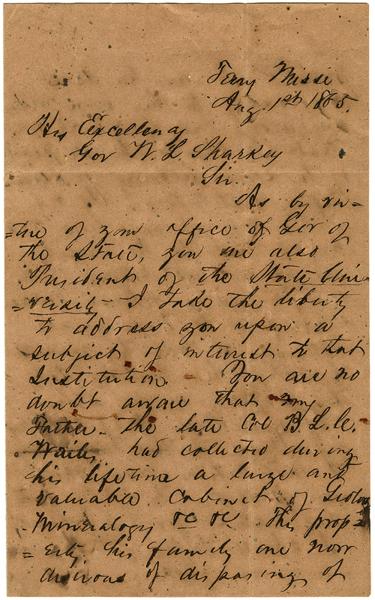 Terry Missi
Aug 1st 1865.
His Excellency
Gov W. L. Sharkey
Sir.
As by vir-
=tue of your office of Gov of
the State, you are also
President of the State Uni-
=versity - I take the liberty
to address you upon a
subject of interest to that
Institution. You are no
doubt aware that my
Father - the late Col B. L. C.
Wailes, had collected during
his lifetime a large and
valuable Cabinet of Geology
- Mineralogy &c &c. This prop=
=erty, his family are now
desirous of disposing of